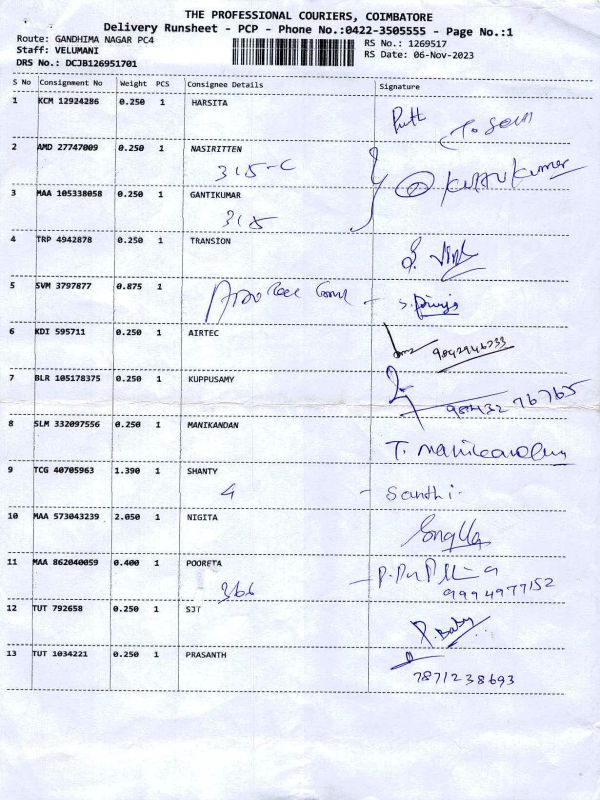 THE PROFESSIONAL COURIERS, COIMBATORE
Delivery Runsheet - PCP - Phone No.:0422-3505555 - Page No.:1
Route: GANDHIMA NAGAR PC4
RS No.: 1269517
Staff: VELUMANI
RS Date: 06-Nov-2023
DRS No.: DCJB126951701
S No Consignment No Weight PCS Consignee Details Signature
1 KCM 12924286 0.250 1 HARSITA
2 AMD 27747009 0.250 1 NASIRITTEN
315-C
3 MAA 105338058 0.250 1 GANTIKUMAR
315
4 TRP 4942878 0.250 1 TRANSION
5 SVM 3797877 0.875 1
6 KDI 595711 0.250 1 AIRTEC
9842946233
7 BLR 105178375 0.250 1 KUPPUSAMY
98432 76765
8 SLM 332097556 0.250 1 MANIKANDAN
T. Manikandan
9 TCG 40705963 1.390 1 SHANTY
4 - Santhi.
10 MAA 573043239 2.050 1 NIGITA
11 MAA 862040059 0.400 1 POORETA
366
9994977152
12 TUT 792658 0.250 1 SJT
P. Baby
13 TUT 1034221 0.250 1 PRASANTH
7871238693